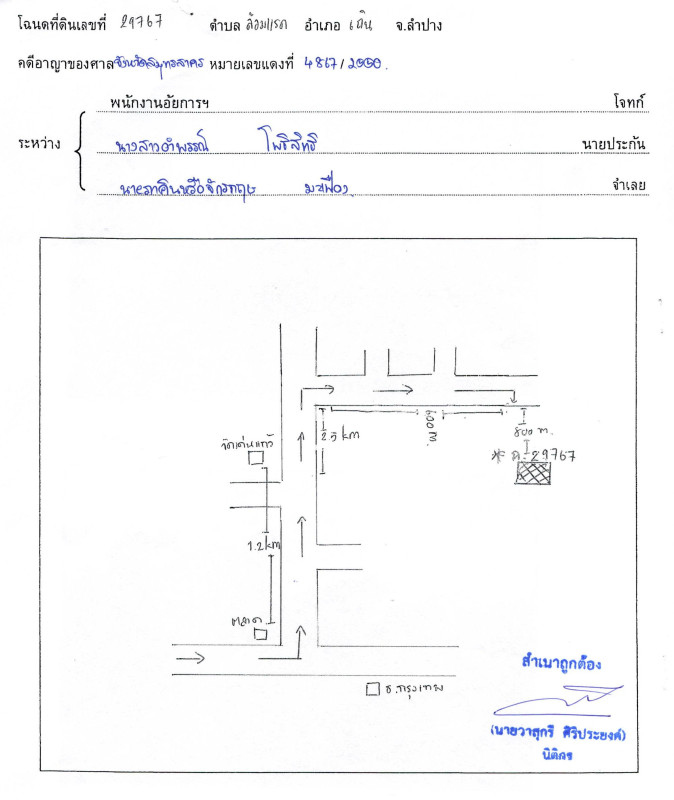 โฉนดที่ดินเลขที่ 29767 ตำบล ล้อมแรด อำเภอ เถิน จ.ลำปาง
คดีอาญาของศาลจังหวัดสมุทรสาคร หมายเลขแดงที่ 4867/2560.
พนักงานอัยการฯ โจทก์
ระหว่าง นางสาวอำพรรณ์ โพธิสิทธิ์ นายประกัน
นายภาคินหรือจักรกฤษ มะเฟือง จำเลย
2.5 km
600 m.
800 m.
วัดเด่นแก้ว
* ฉ. 29767
1.2 km
ตลาด
ธ.กรุงเทพ
สำเนาถูกต้อง
(นายวาสุกรี ศิริประยงค์)
นิติกร